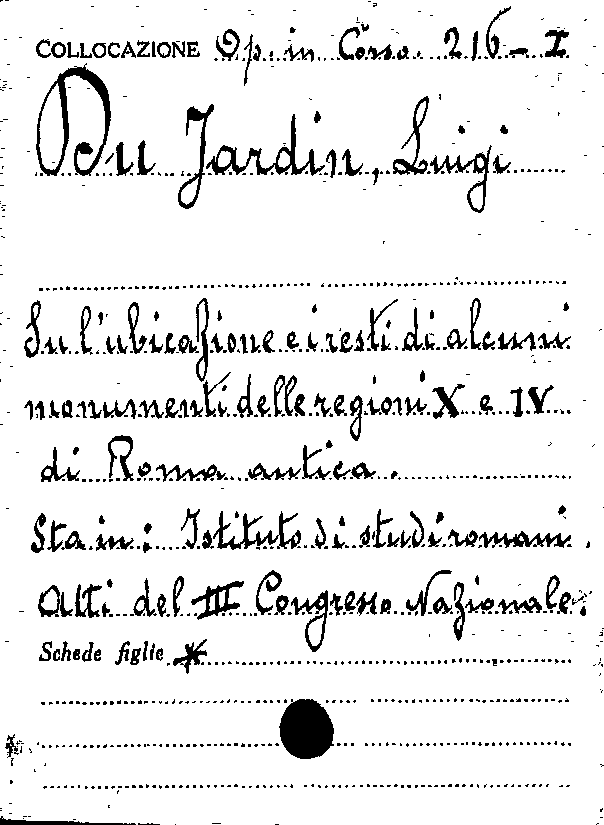 COLLOCAZIONE Op. in Corso. 216 - I
Du Jardin, Luigi
Su l'ubicazione e i resti di alcuni
monumenti delle regioni X e IV
di Roma antica.
Sta in: Istituto di studi romani.
Atti del III Congresso Nazionale.
Schede figlie *